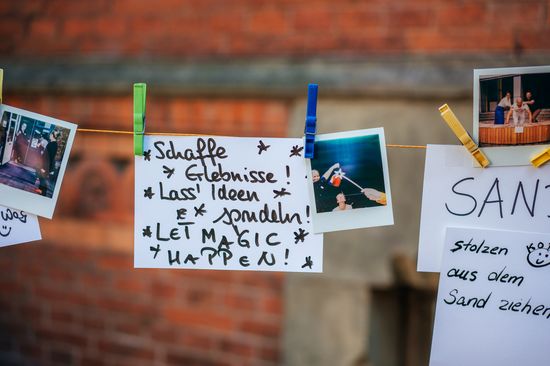 Schaffe
Erlebnisse!
Lass' Ideen
& sprudeln!
LET MAGIC
HAPPEN!
was
SAN
stolzen
aus dem
Sand ziehen